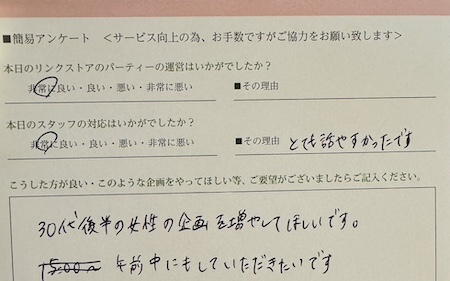 ■簡易アンケート <サービス向上の為、お手数ですがご協力をお願い致します>
本日のリンクストアのパーティーの運営はいかがでしたか?
非常に良い・良い・悪い・非常に悪い ■その理由
本日のスタッフの対応はいかがでしたか?
非常に良い・良い・悪い・非常に悪い ■その理由 とても話やすかったです
こうした方が良い・このような企画をやってほしい等、ご要望がございましたらご記入ください。
30代後半の女性の企画を増やしてほしいです。
15:00〜 午前中にもしていただきたいです